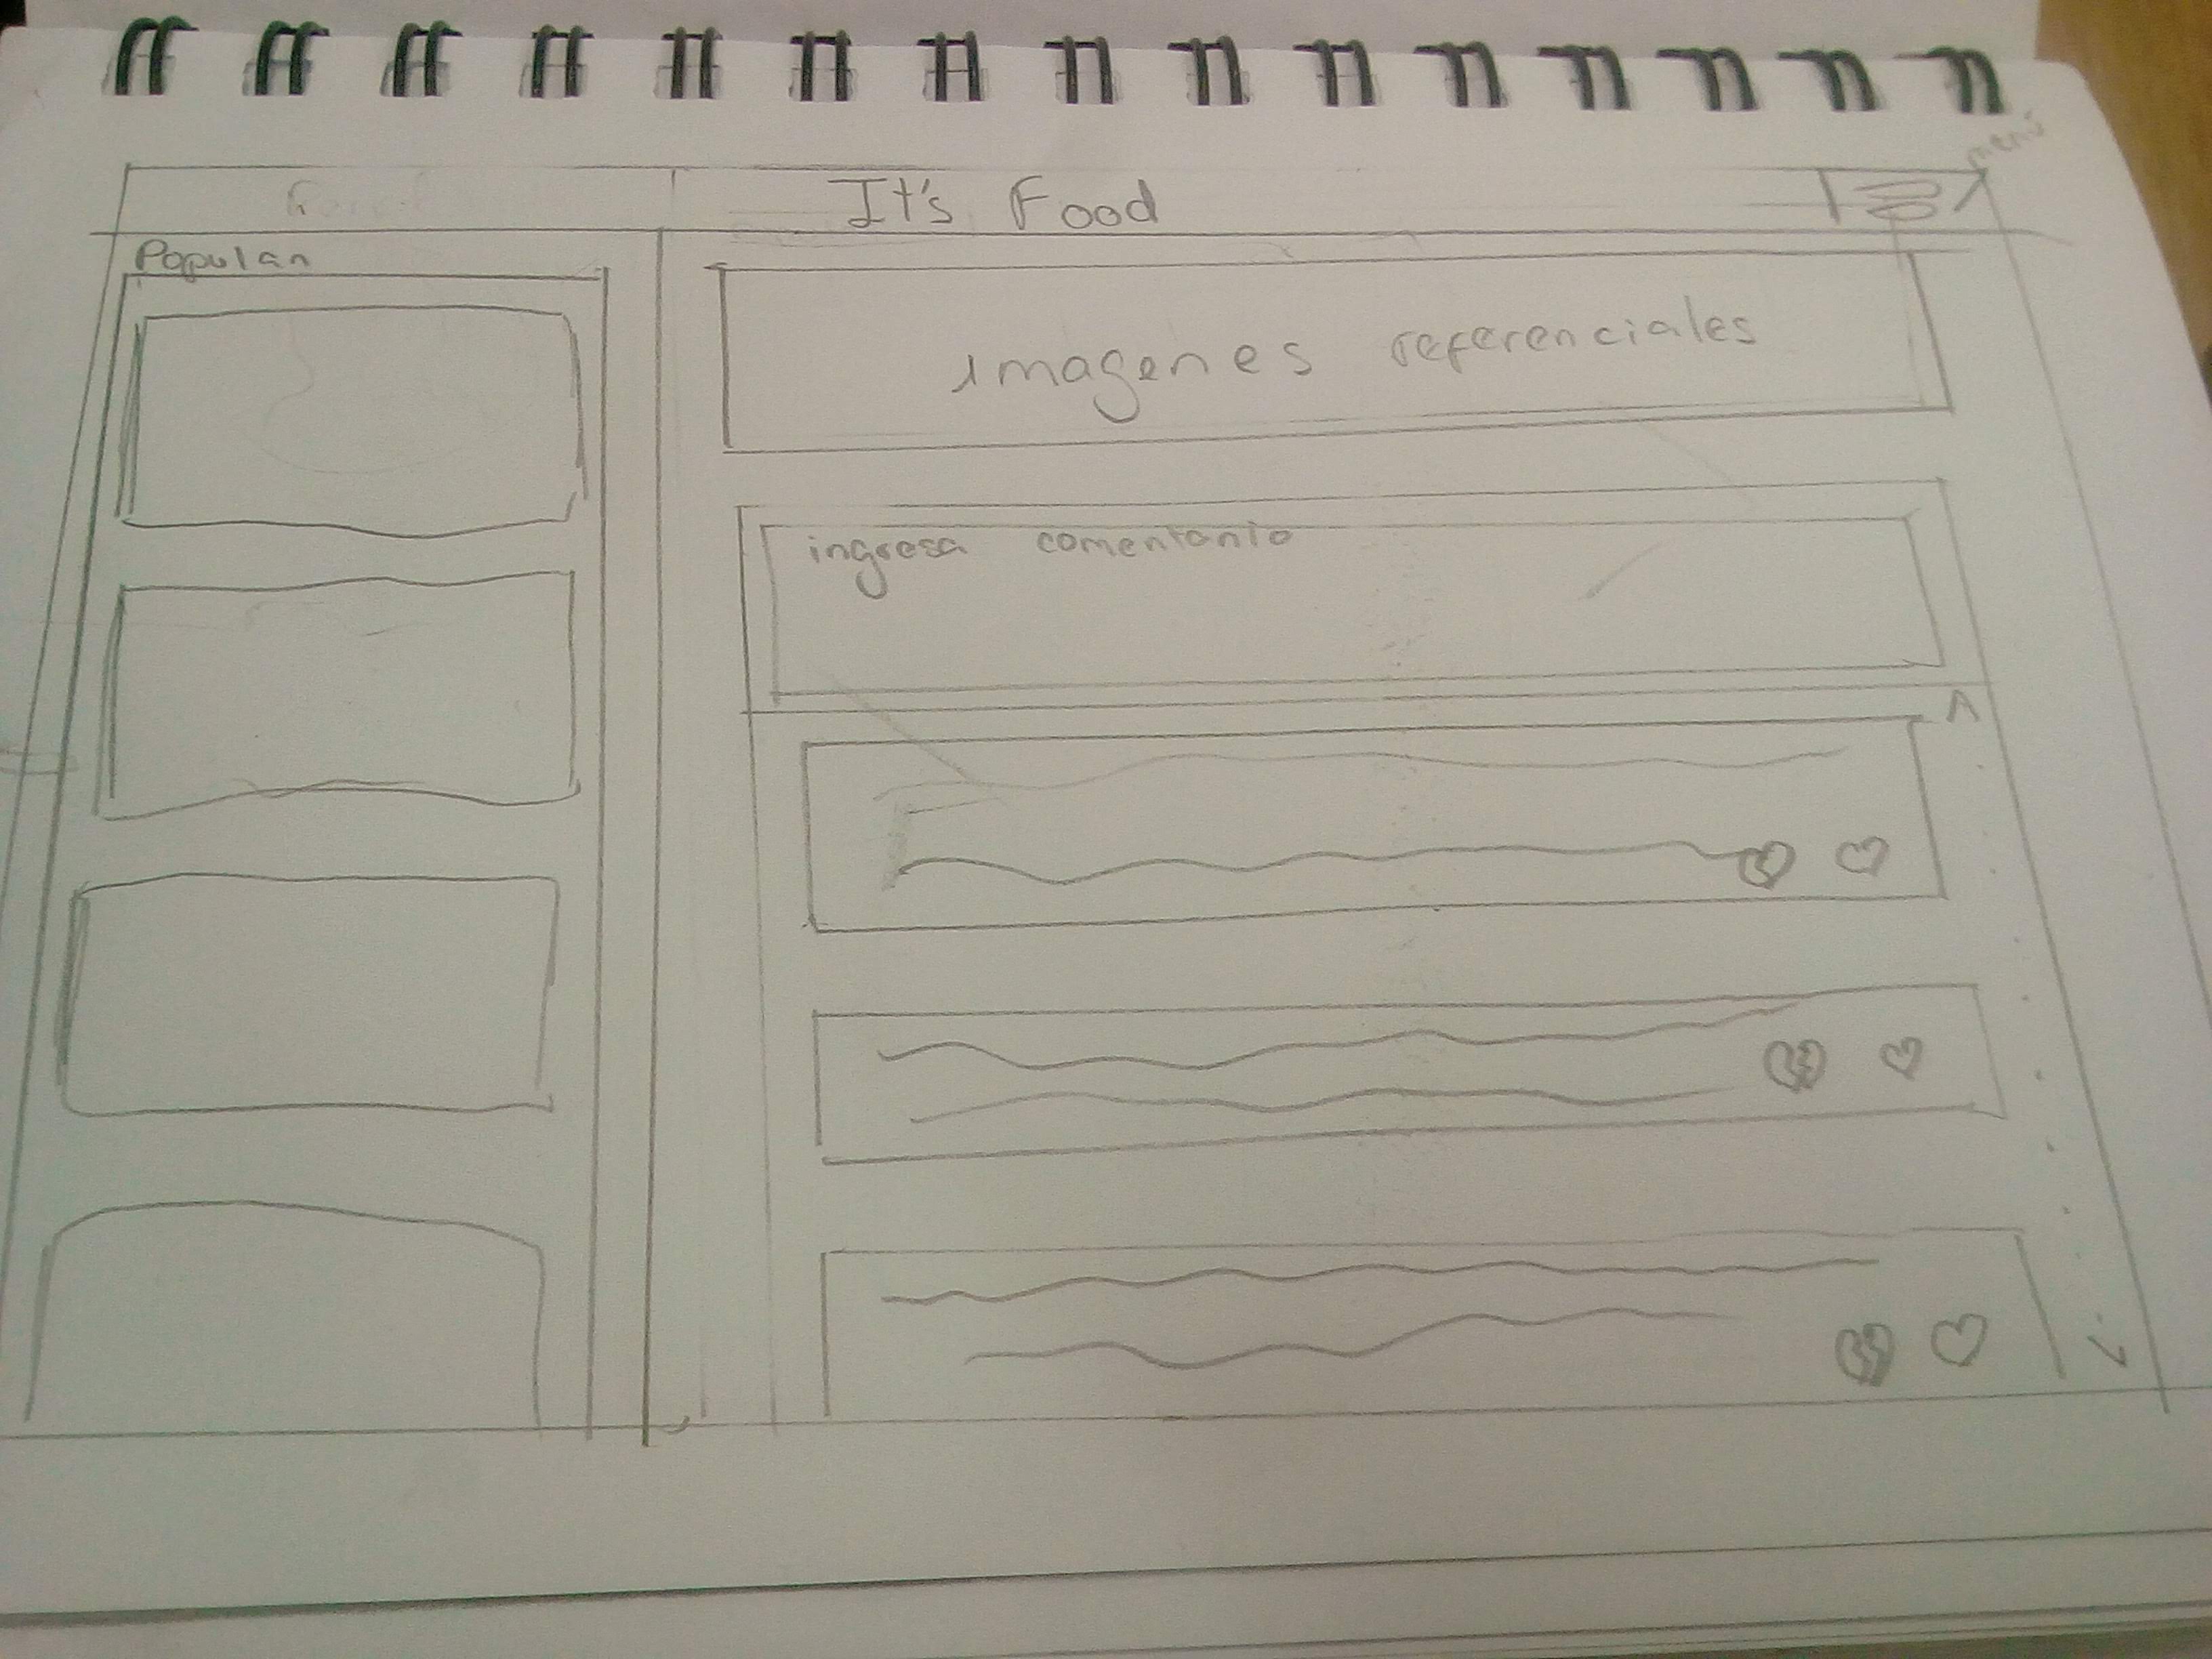 menú
It's Food
Popular
imagenes referenciales
ingresa comentario